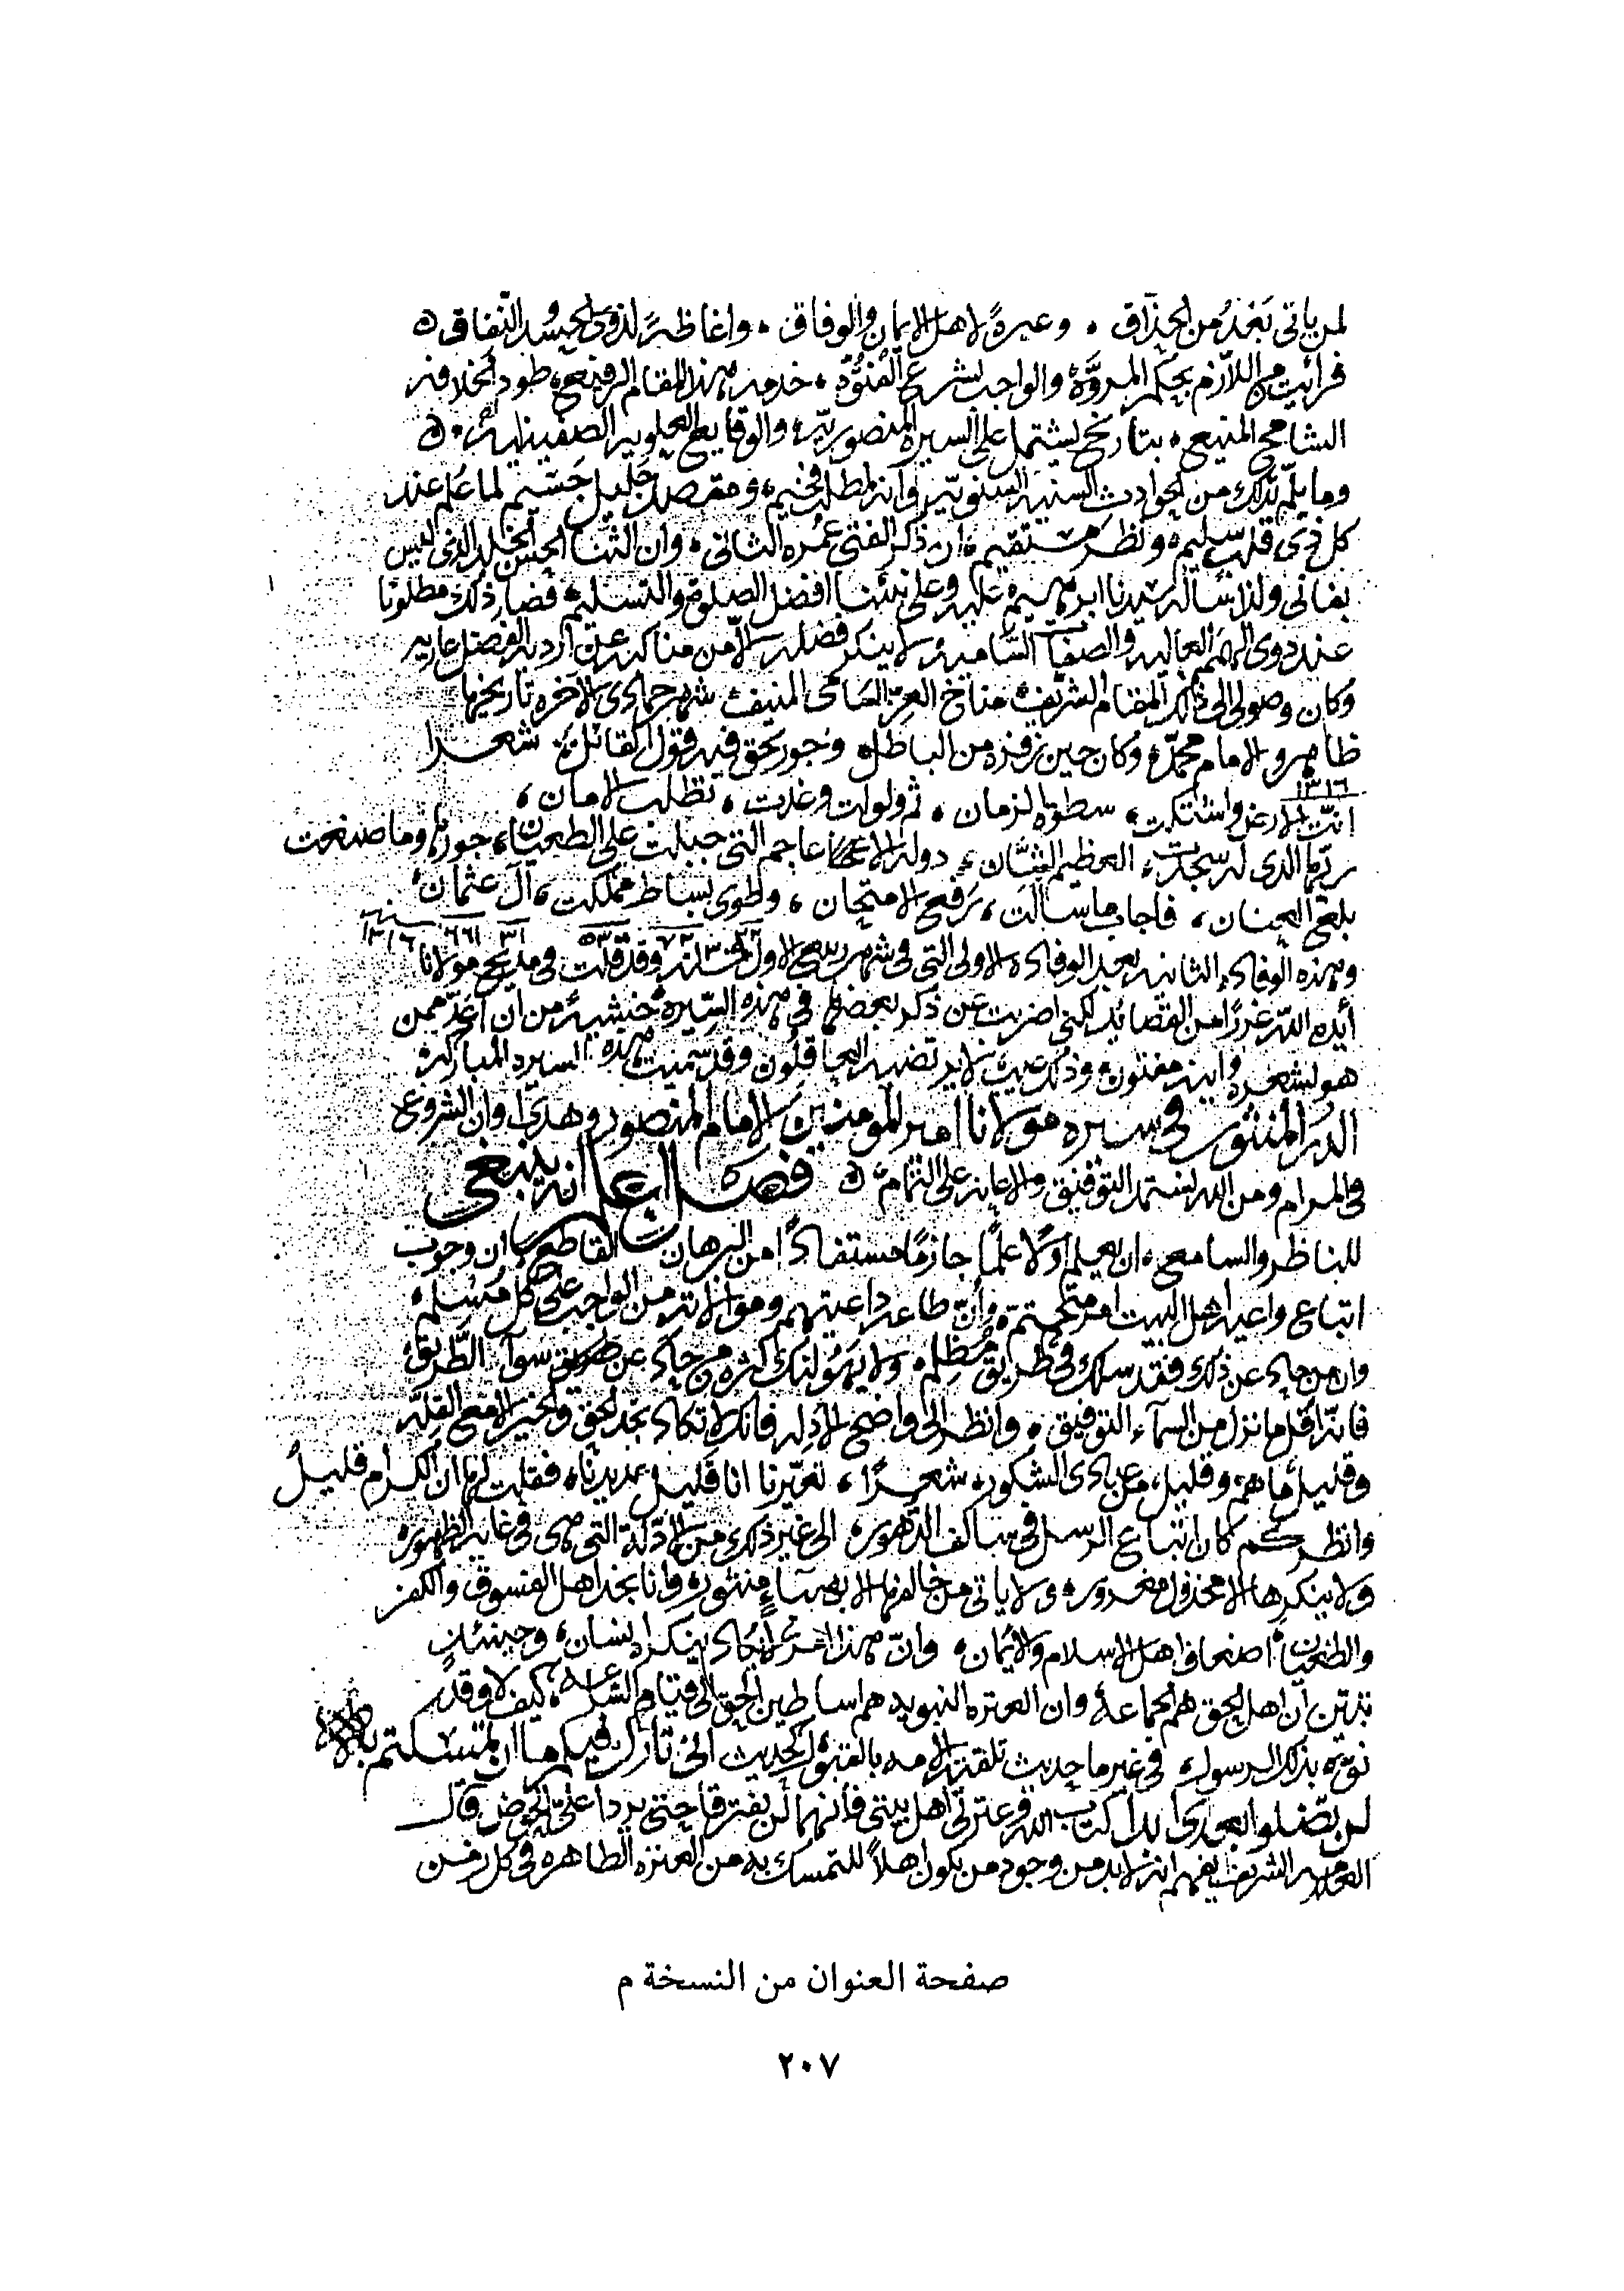 لمن ياتى بَعْدُ من الحذاق ، وعبرةً لاهل الايمان والوفاق ، واغاظةً لذوى الحسد والنفاق ه
فرائيت من اللازم بحكم المروّة والواجب بشرع الفتوّة ، خدمة هذا المقام الرفيع ، طود الخلافة
الشامخ المنيع ، بتاريخ يشتمل على السيرة المنصوريّة والوقايع العلوية ه
وما يلم بذلك من الحوادث السنية وانه لمطلب فخيم ، ومقصد جليل جسيم لما علم عند
كل ذى قلب سليم ، ونظر مستقيم ، ان ذكر الفتى عمره الثانى ، وان الثناء الحسن الخلد الذى ليس
بفانى ولذا سأله سيدنا ابرهيم عليه وعلى نبينا افضل الصلوة والتسليم ، فصار ذلك مطلوبًا
عند ذوى الهمم العاليه والصفات الساميه ، لا ينكر فضله الا من مناكبه عن اردية الفضل عاريه
وكان وصولى الى ذلك المقام الشريف ، مناخ العز السامى المنيف ، شهر جمادى الآخره تاريخها
ظاهر والامام محمد ، وكان حين زفزه من الباطل وجور يحق فيه قول القائل شعـرا
١٣١٦
انّت الارض واشتكت ، سطوة الزمان ، ثم ولولت وغدت ، تطلب الامان ،
ربها الذى له سجدت ، العظيم الشان ، دولة الاعاجم التى جبلت على الطغيان ، جورها وما صنعت
بلغ العنان ، فاجاب ما سالت ، برفع الامتحان ، وطوى بساط مملكت ، آل عثمان ،
٣٢ ٧٢٣ ٥٣ ٣١ ٦٦١ سنه ١٣١٦
وهذه الوفادة الثانيه بعد الوفادة الاولى التى فى شهر ربيع الاول وقد قلت فى مديح مولانا
أيده الله غررًا من القصائد لكنى اضربت عن ذكر بعضها فى هذه السيرة خشيةً من ان اعد ممن
هو بشعره وابنه مفتون وذلك عيب لا يرتضيه العاقلون وقد سميت هذه السيره المباركه
الدر المنثور فى سيره مولانا امير المومنين الامام المنصور وهذا اوان الشروع
فى المرام ومن الله نستمد التوفيق والاعانة على التمام ه فصل اعلم انه ينبغى
للناظر والسامع ، ان يعلم اولا علمًا جازمًا مستفادًا من البرهان القاطع ان وجوب
اتباع داعي اهل البيت امر متحتم ، وأنّ طاعة داعيتهم وموالاته من الواجب على كل مسلم ،
وان من حاد عن ذلك فقد سلك فى طريق مظلم ، ولا يهولنك كثرة من حاد عن سوآء الطريق ،
فانه اقل ما نزل من السماء التوفيق ، وانظر الى واضح الادله فانك لا تكاد تجد الحق والخير الا مع القله
وقليل ما هم ، وقليل من عبادى الشكور ، شعرًا ، تعيّرنا انا قليل عديدنا ، فقلت لها ان الكرام قليلُ
وانظر كم كان اتباع الرسل فى سالف الدهور ، الى غير ذلك من الادلة التى هى فى غاية الظهور ،
ولا ينكرها الا مخذول مغرور ، ولا ياتى من خالفها الا بهباءٍ منثور ، وانا نجد اهل الفسوق والكفر
والطغيان ، اضعاف اهل الاسلام والايمان ، وانّ هذا امر لا يكاد ينكره انسان ، وحينئذٍ
تبيّن ان اهل الحق هم الجماعة وان العترة النبويه هم اساطين الحق الى قيام الساعة ، كيف لا وقد
نوّه بذلك الرسول ، فى غير ما حديث تلقته الامه بالقبول كحديث انى تارك فيكم ما ان تمسكتم به
لن تضلوا بعدى ابدا كتاب الله وعترتى اهل بيتى فأنهما لن يفترقا حتى يردا على الحوض قال
العلامه الشريف يفهم انه لا بد من وجود من يكون اهلاً للتمسك به من العتره الطاهره فى كل زمن
صفحة العنوان من النسخة م
٢٠٧